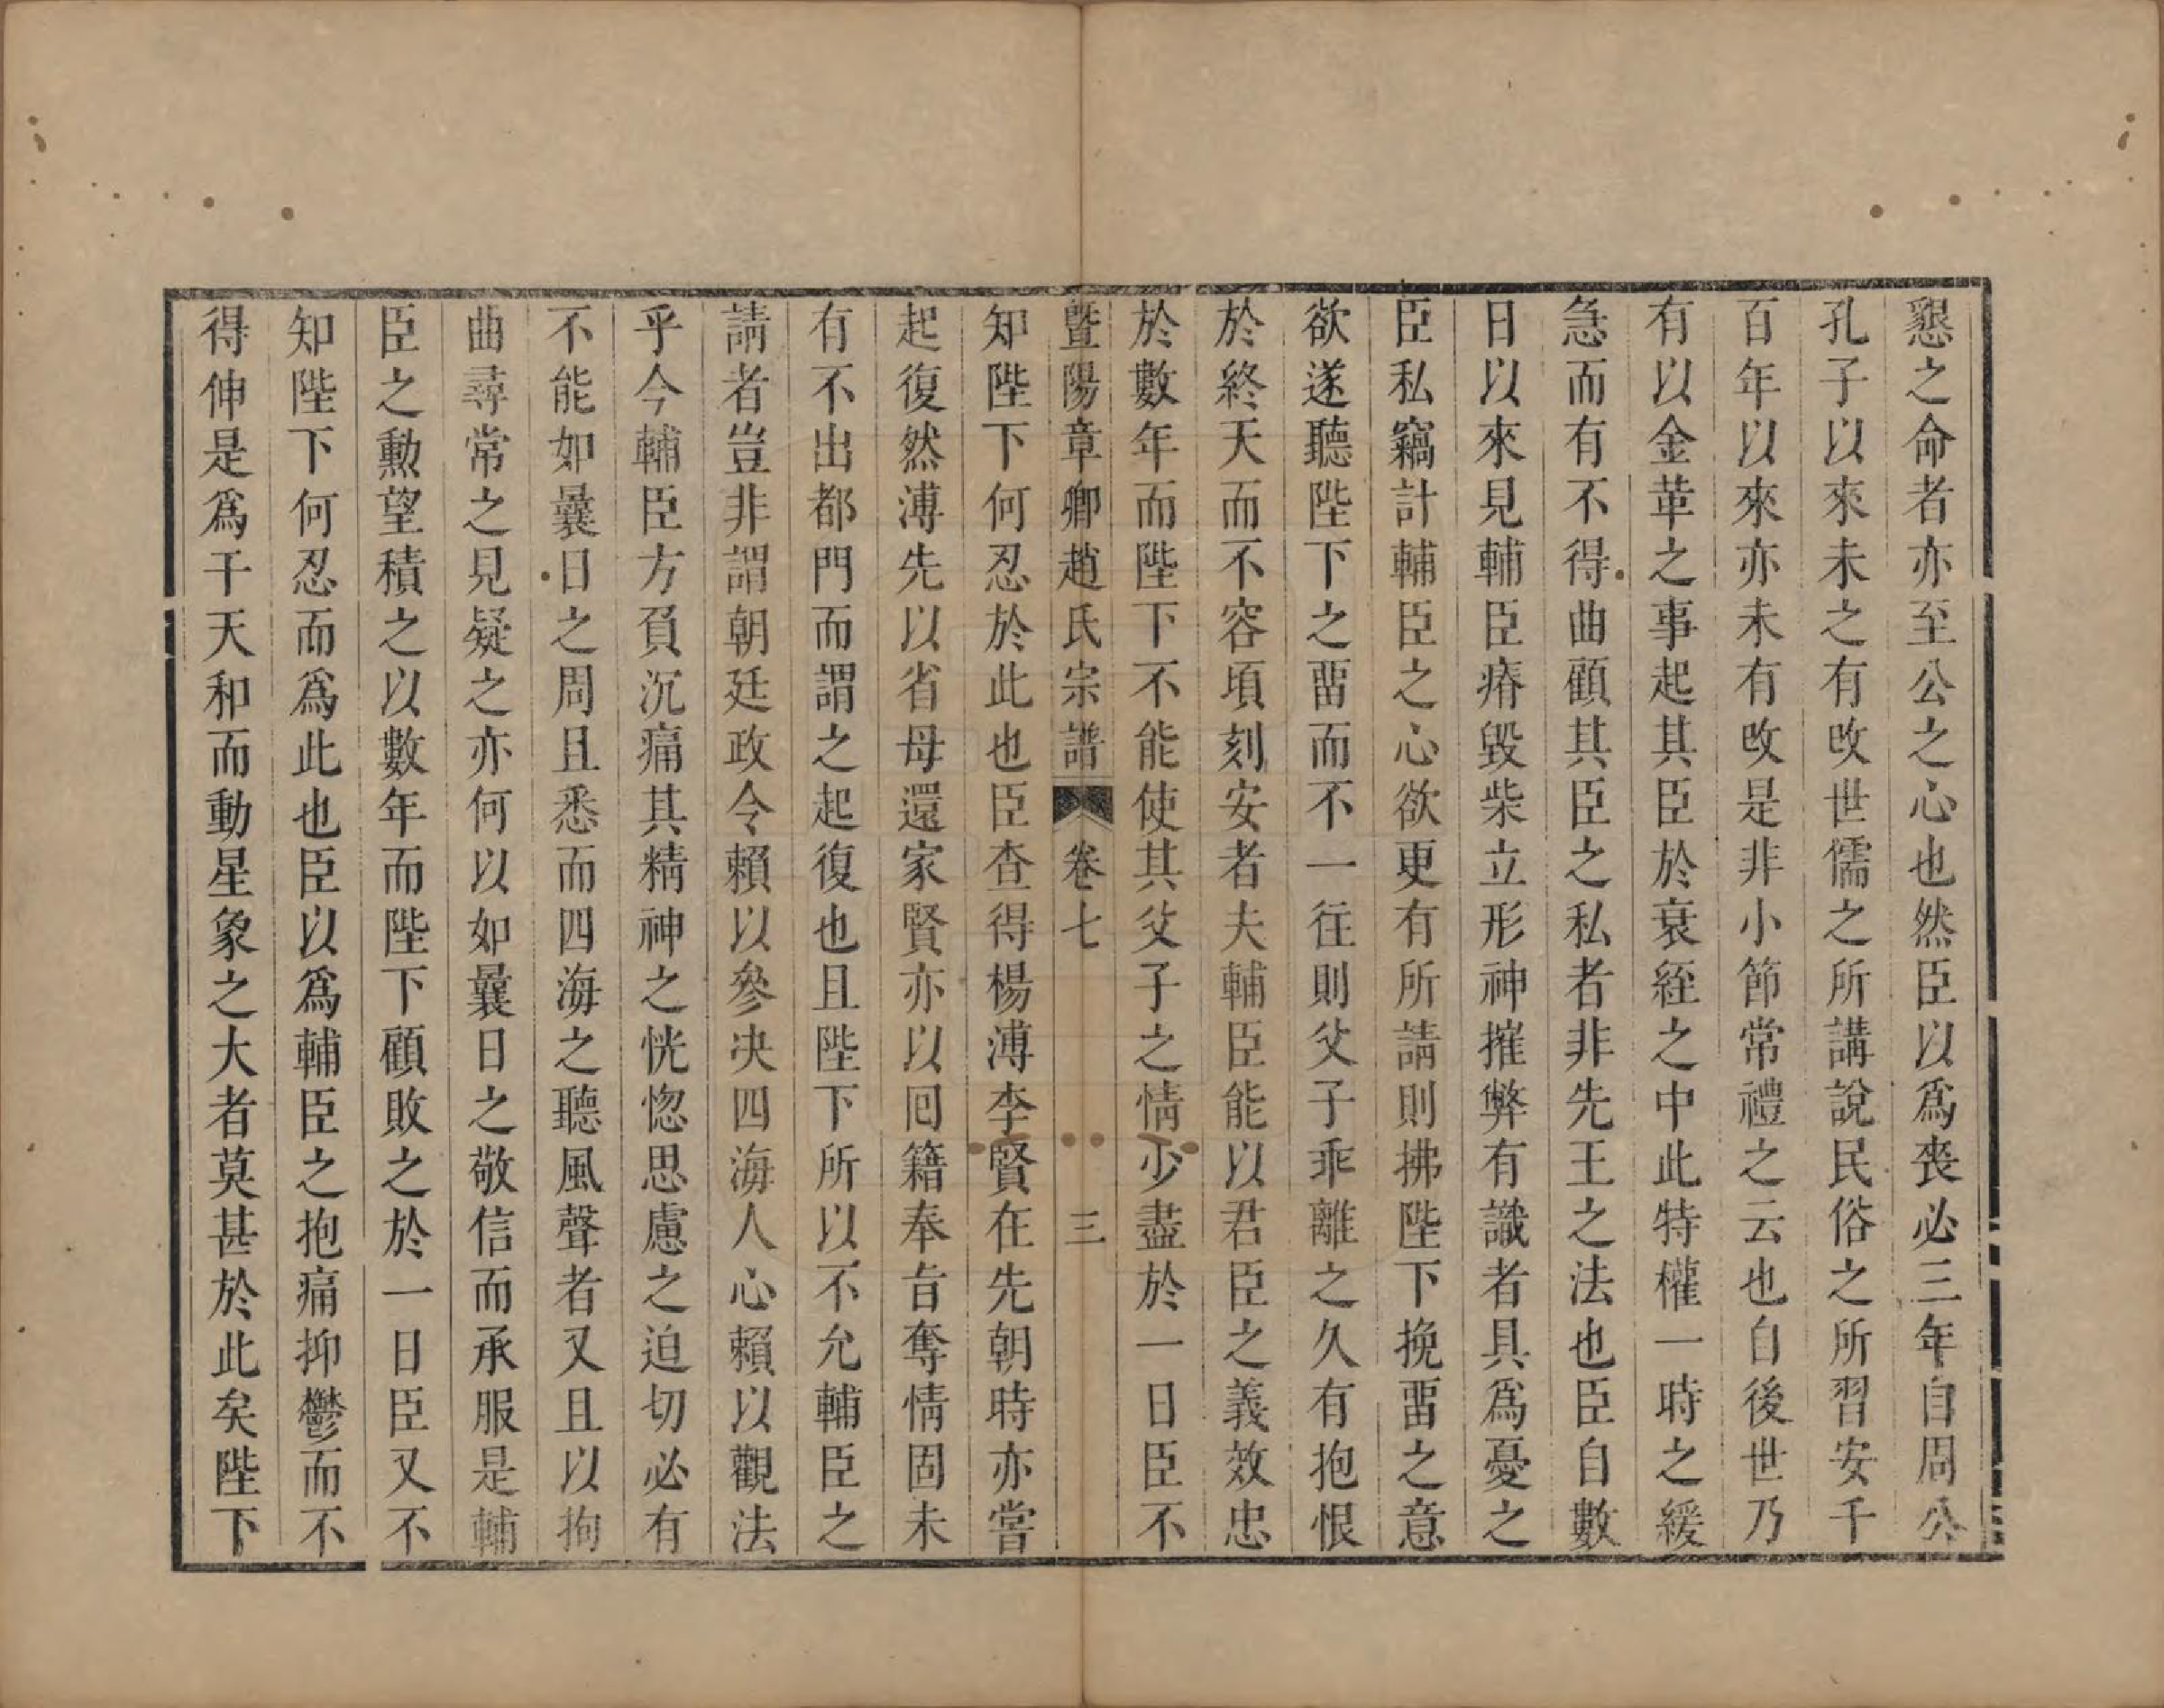 懇之命者亦至公之心也然臣以爲喪必三年自周公
孔子以來未之有改世儒之所講說民俗之所習安千
百年以來亦未有改是非小節常禮之云也自後世乃
有以金革之事起其臣於衰絰之中此特權一時之緩
急而有不得曲顧其臣之私者非先王之法也臣自數
日以來見輔臣瘠毀柴立形神摧弊有識者具爲憂之
臣私竊計輔臣之心欲更有所請則拂陛下挽畱之意
欲遂聽陛下之畱而不一往則父子乖離之久有抱恨
於終天而不容頃刻安者夫輔臣能以君臣之義效忠
於數年而陛下不能使其父子之情少盡於一日臣不
暨陽章卿趙氏宗譜 卷七 三
知陛下何忍於此也臣查得楊溥李賢在先朝時亦嘗
起復然溥先以省母還家賢亦以囘籍奉旨奪情固未
有不出都門而謂之起復也且陛下所以不允輔臣之
請者豈非謂朝廷政令賴以參决四海人心賴以觀法
乎今輔臣方負沉痛其精神之恍惚思慮之迫切必有
不能如曩日之周且悉而四海之聽風聲者又且以拘
曲尋常之見疑之亦何以如曩日之敬信而承服是輔
臣之勲望積之以數年而陛下顧敗之於一日臣又不
知陛下何忍而爲此也臣以爲輔臣之抱痛抑鬱而不
得伸是爲干天和而動星象之大者莫甚於此矣陛下